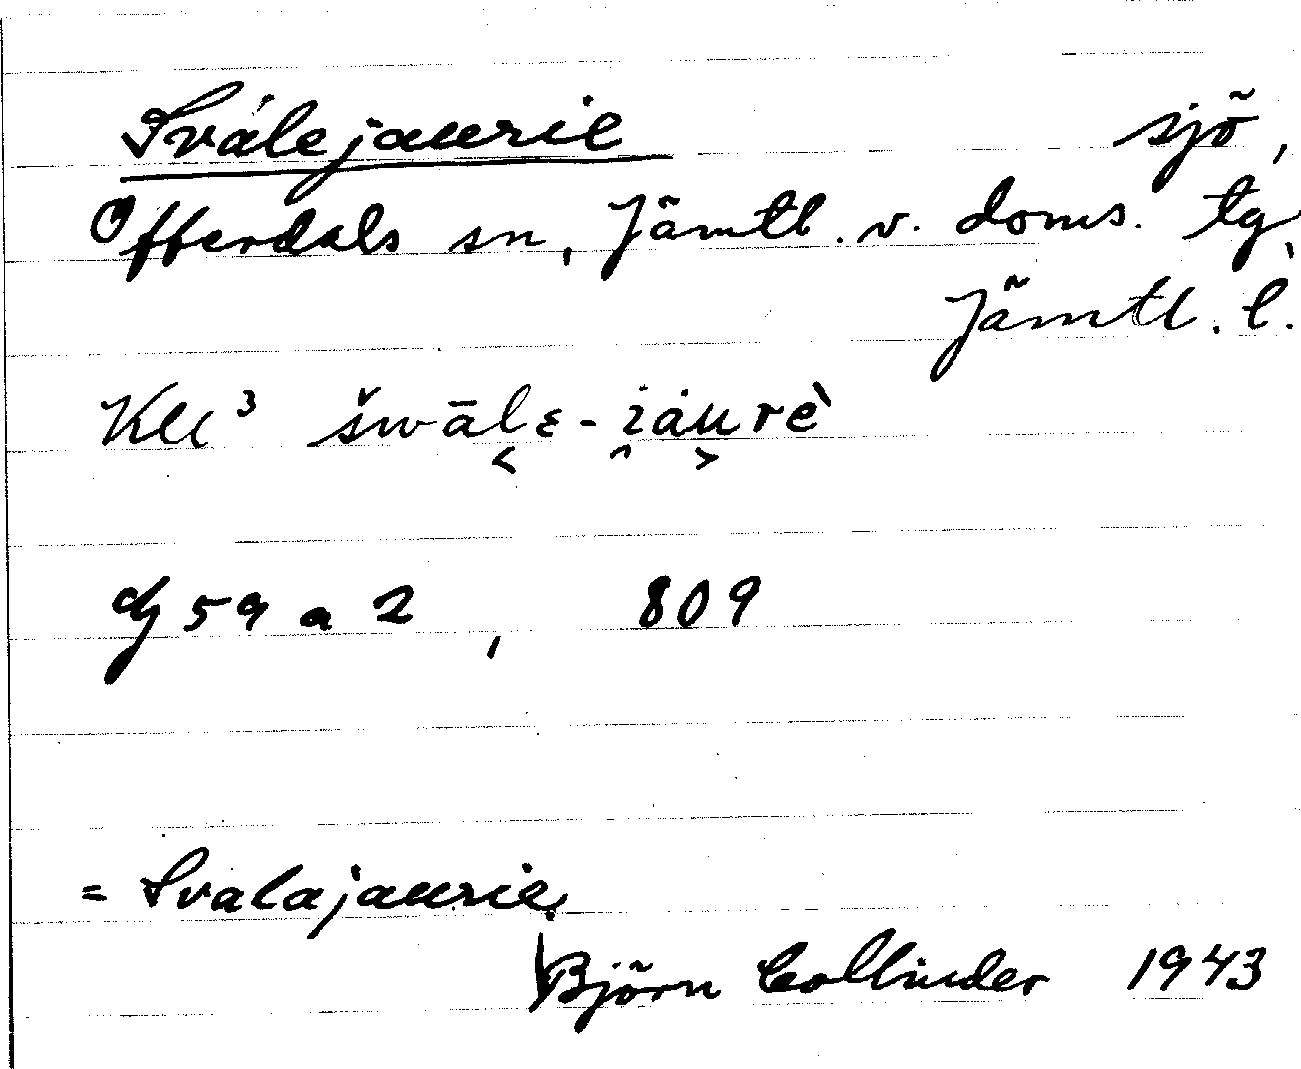 Sválejaurie sjö,
Offerdals sn, Jämtl. v. doms. tg,
Jämtl. l.
Kll³ šwālɛ-i̯áurè
dj 59 a 2, 809
= Svalajaurie,
Björn Collinder 1943